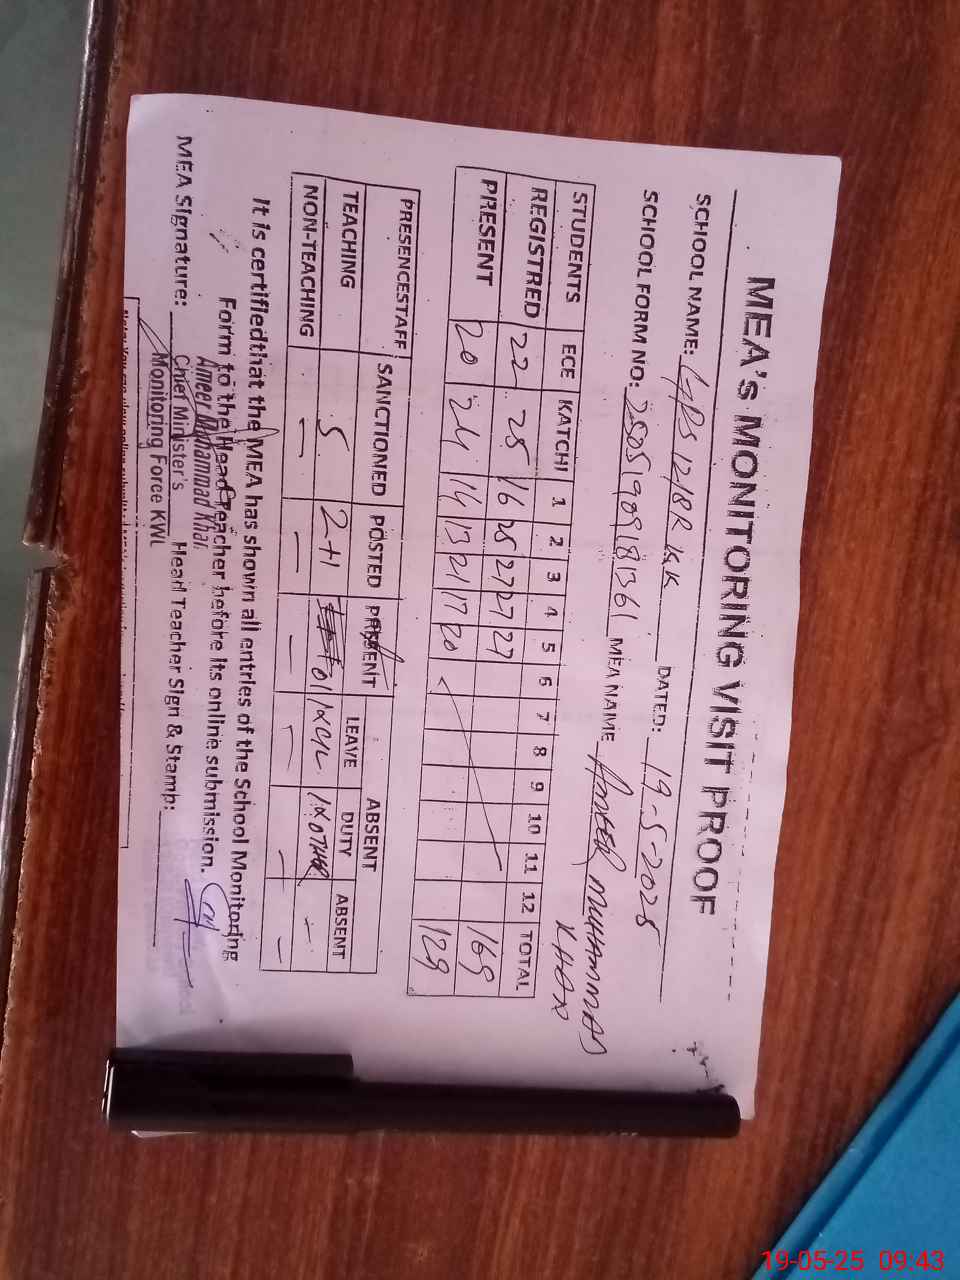 MEA's MONITORING VISIT PROOF
SCHOOL NAME: GPS 121 8R KK DATED: 19-5-2025
SCHOOL FORM NO: 25051909181361 MEA NAME AMEER MUHAMMAD KHAN
STUDENTS ECE KATCHI 1 2 3 4 5 6 7 8 9 10 11 12 TOTAL
REGISTRED 22 25 16 25 27 27 27 169
PRESENT 20 24 14 13 21 17 20 129
PRESENCESTAFF SANCTIONED POSTED PRESENT ABSENT
LEAVE DUTY ABSENT
TEACHING 5 2+1 01 1xC/L 1xOTHER -
NON-TEACHING - - - - - -
It is certifiedthat the MEA has shown all entries of the School Monitoring
Form to the Head Teacher before its online submission.
MEA Signature: Head Teacher Sign & Stamp:
Ameer Muhammad Khan
Chief Minister's
Monitoring Force KWL
19-05-25 09:43